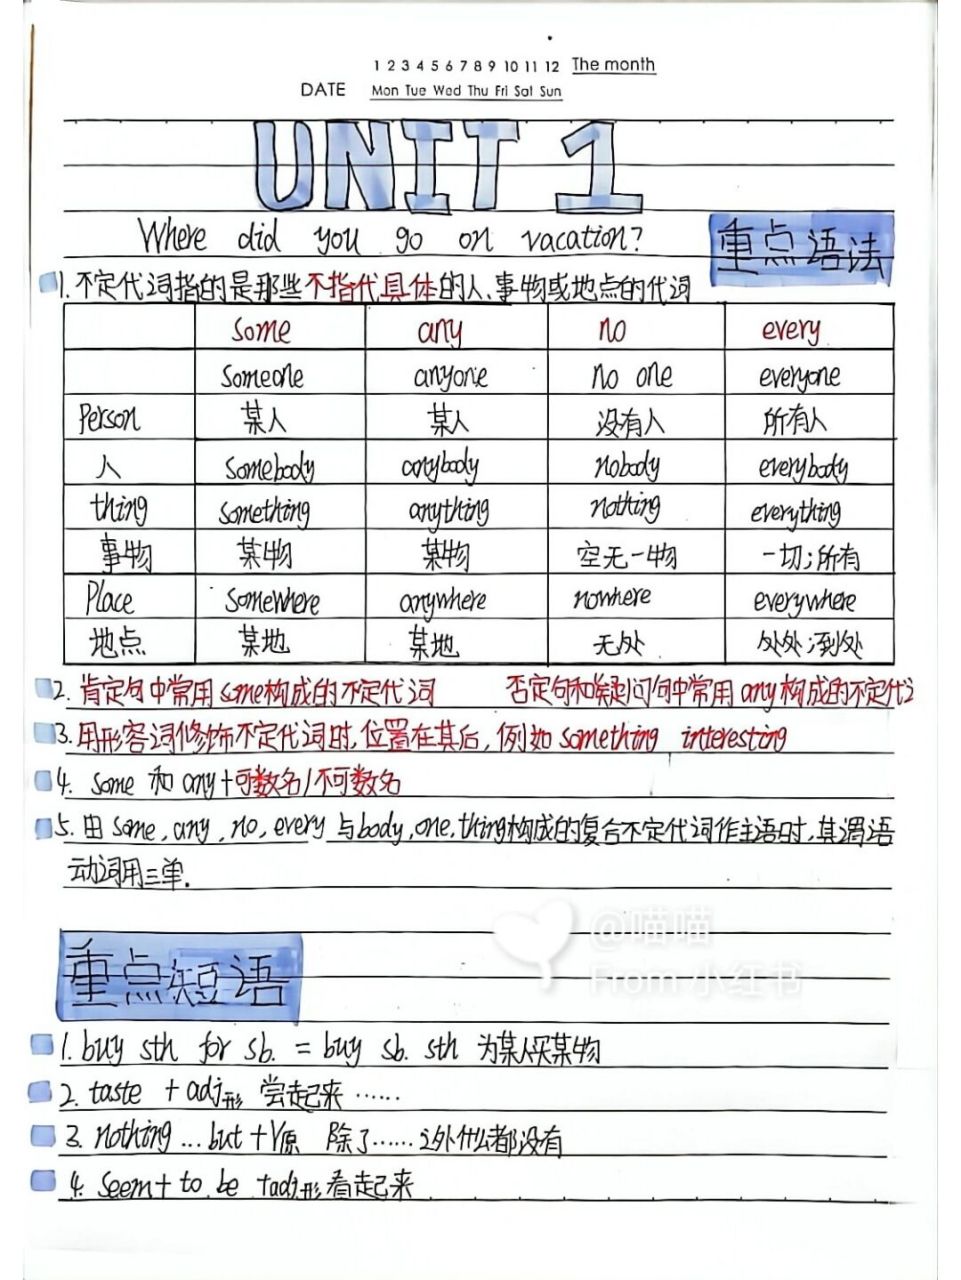 1 2 3 4 5 6 7 8 9 10 11 12 The month
DATE Mon Tue Wed Thu Fri Sat Sun
UNIT 1
Where did you go on vacation?
重点语法
1. 不定代词指的是那些不指代具体的人、事物或地点的代词
some any no every
someone anyone no one everyone
Person 某人 某人 没有人 所有人
人 somebody anybody nobody everybody
thing something anything nothing everything
事物 某物 某物 空无一物 一切;所有
Place somewhere anywhere nowhere everywhere
地点 某地 某地 无处 处处;到处
2. 肯定句中常用some构成的不定代词 否定句和疑问句中常用any构成的不定代
3. 用形容词修饰不定代词时,位置在其后,例如something interesting
4. some 和 any+可数名/不可数名
5. 由some, any, no, every 与body, one, thing构成的复合不定代词作主语时,其谓语
动词用三单.
@喵喵
From 小红书
重点短语
1. buy sth for sb. = buy sb. sth 为某人买某物
2. taste + adj形 尝起来……
3. nothing ... but + V原 除了……之外什么都没有
4. seem+ to be +adj.形 看起来